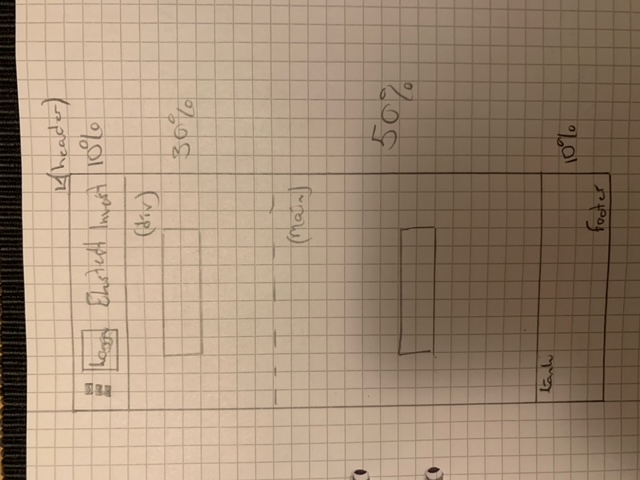 (header)
Logo Ekstedt Invest 10%
(div)
30%
(Main)
50%
10%
footer